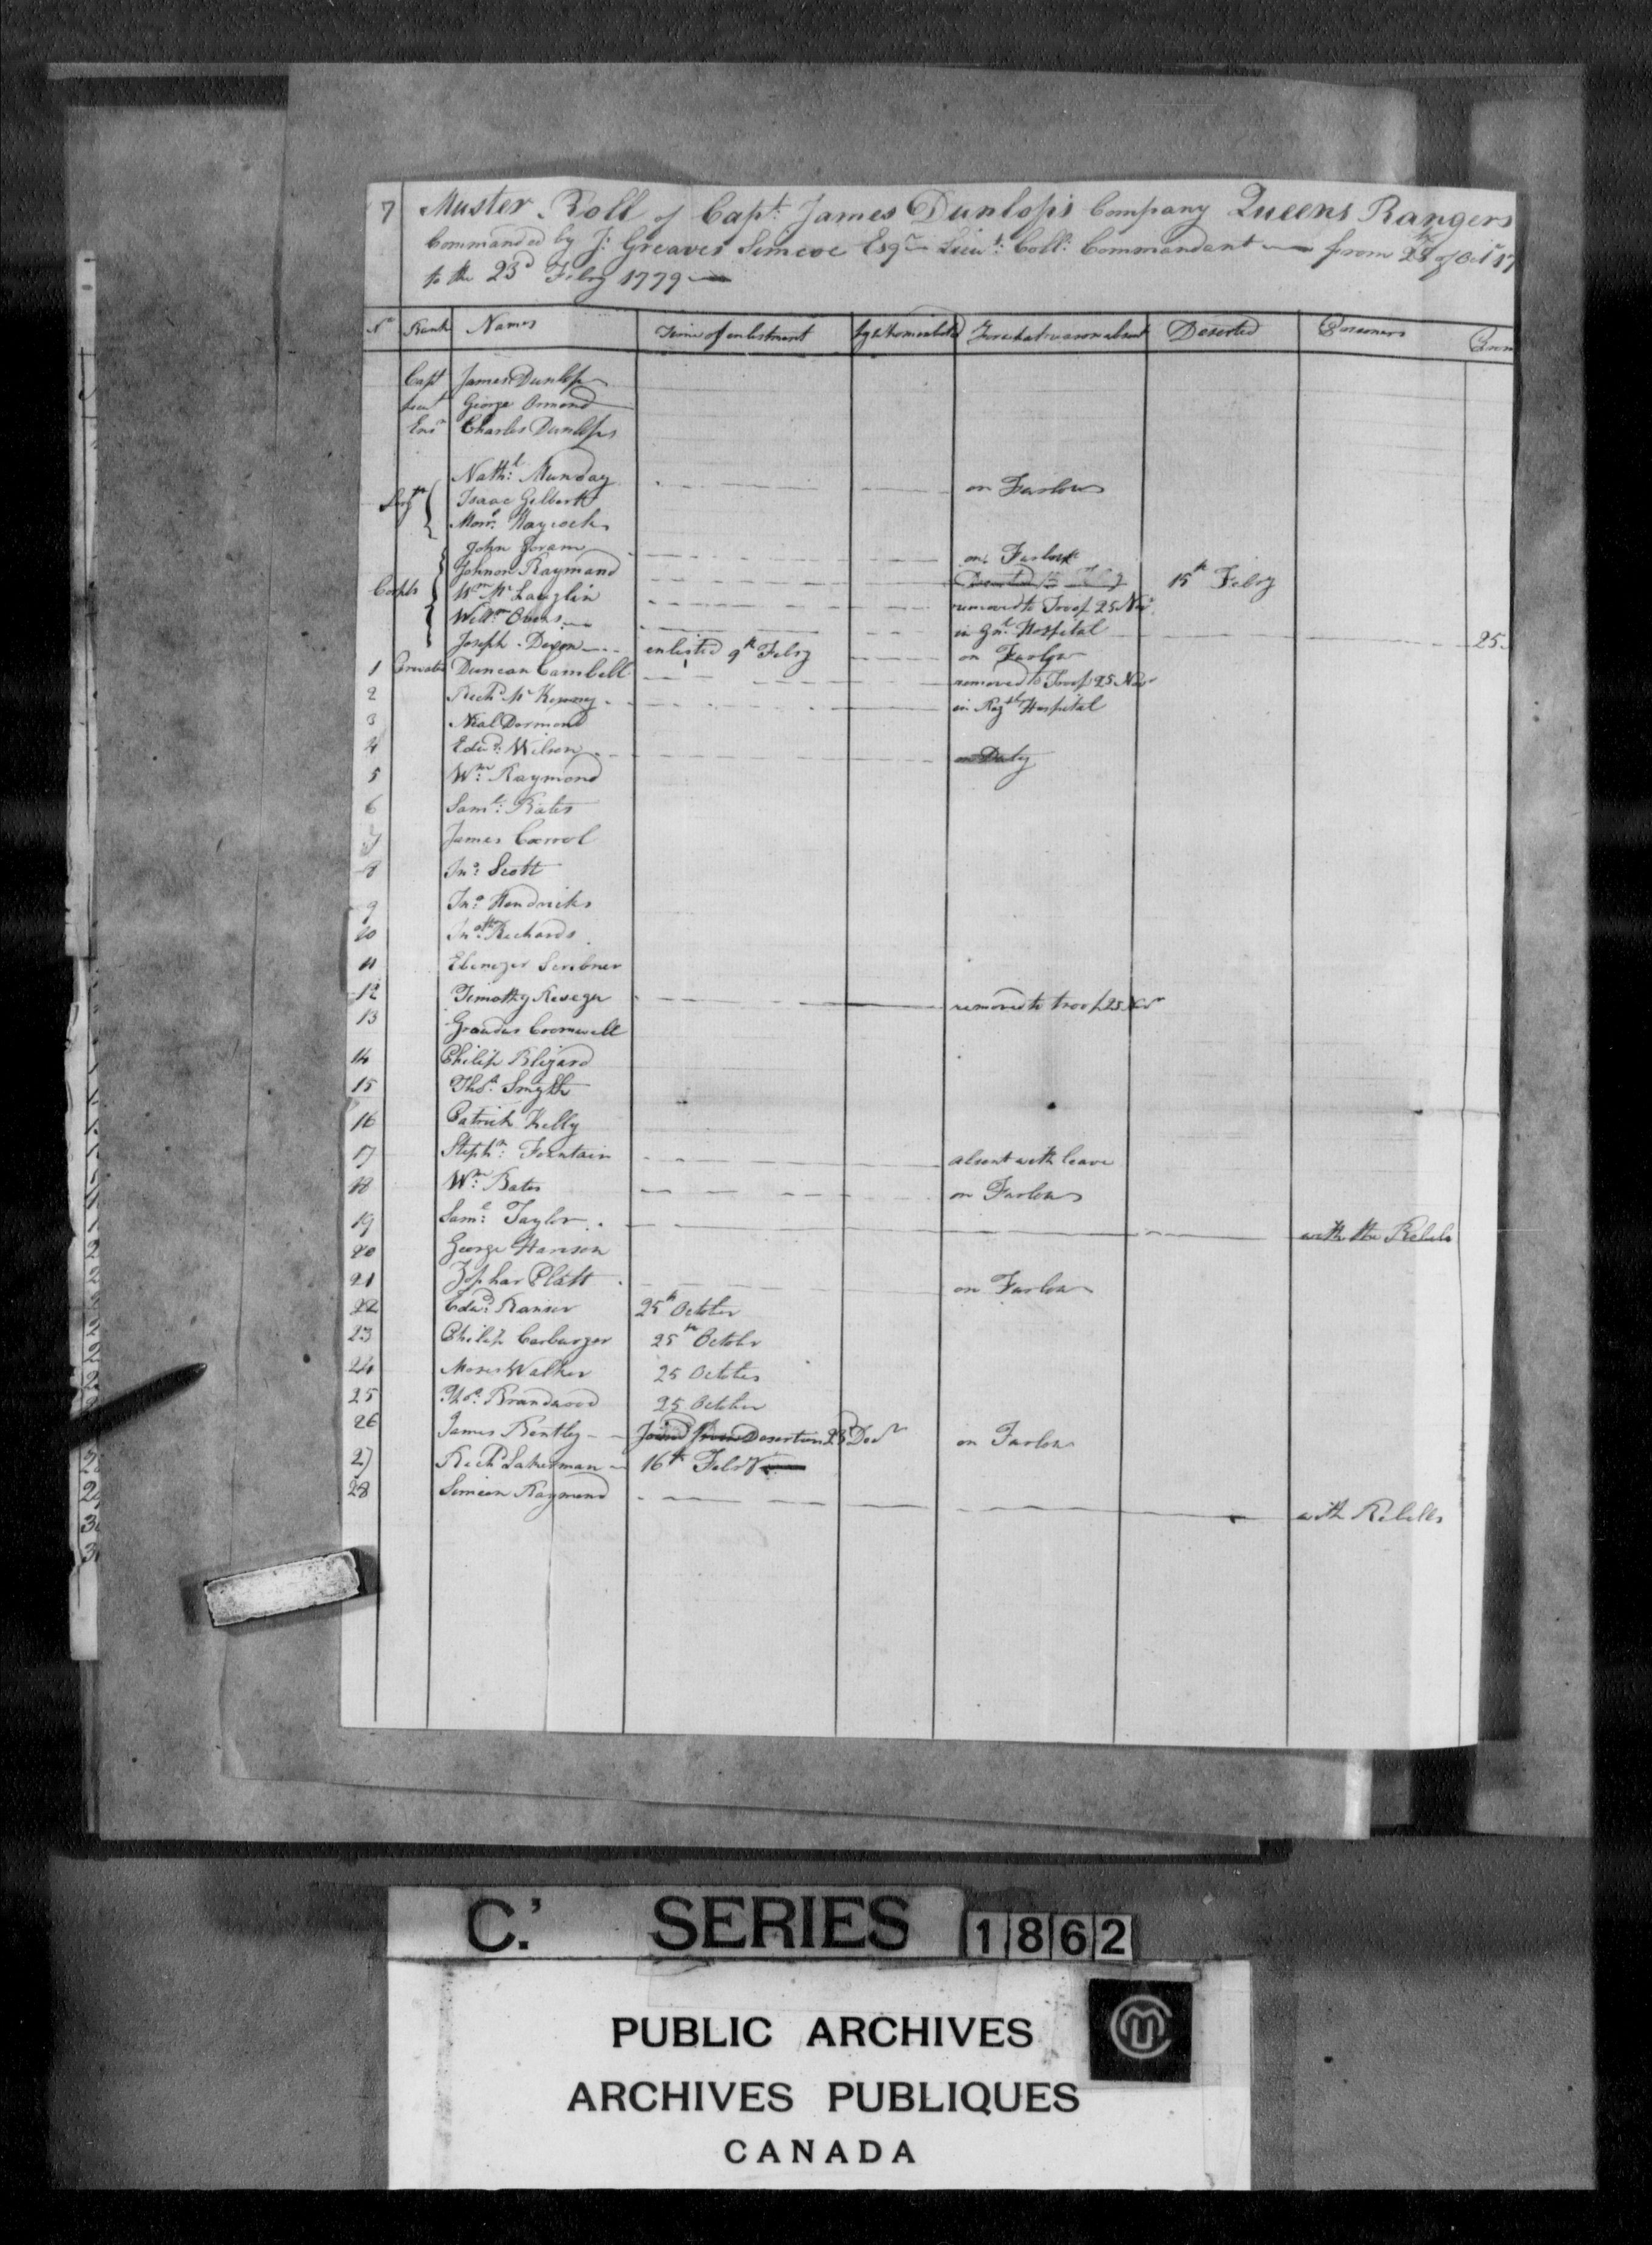 7 Muster Roll of Capt: James Dunlop's Company Queens Rangers
Commanded by J: Greaves Simcoe Esqr Lieut: Coll: Commandant from of Oct 17
to the 23d Febry 1779
No Rank Names Time of enlistment by whom enlisted For what reason absent Deserted Prisoners
Capt James Dunlop
Lieut George Ormond
Ensn Charles Dunlop
Nathl: Munday on Furlow
Sergts Isaac Gilbert
Haycock
John on Furlow
Johnon Raymond Deserted 15 Feby 15th Febry
Corpls Wm Mc Laughlin removed to Troop 25 Novr
Willm Owens in Gnl Hospital 25
Joseph Dixon enlisted 9th Febry on Furlow
1 Privates Duncan Cambell removed to Troop 25 Novr
2 Richd Mc Kinney in Regtl Hospital
3 Nial Dormond
4 Edwd: Wilson on Duty
5 Wm: Raymond
6 Saml: Bates
7 James Carrol
8 Jno: Scott
9 Jno: Hendricks
10 Richards
11 Ebenezer Scribner
12 Timothy removed to troop 25 Novr
13 Cromwell
14 Philip Blizard
15 Thos: Smyth
16 Patrick Kelly
17 Stephn: Fountain absent with leave
18 Wm: Bates on Furlow
19 Saml: Taylor with the Rebels
20 George Hanson
21 Zophar Platt on Furlow
22 Edwd: Ranser 25th October
23 Philip Carburger 25th Octobr
24 Moses Walker 25 October
25 Thos: Brandwood 25 October
26 James Bentley Joined from Desertion 23 Decr on Furlow
27 Richd Lakerman 16th Febry
28 Simeon Raymond with Rebells
C.' SERIES 1862
PUBLIC ARCHIVES
ARCHIVES PUBLIQUES
CANADA